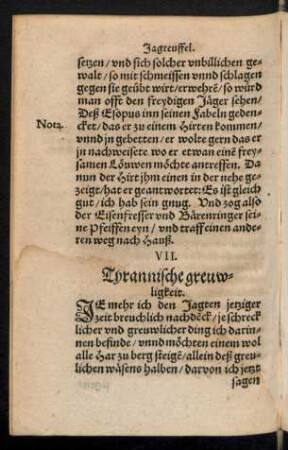 Jagteuffel.
setzen/ vnd sich solcher vnbillichen ge-
walt/ so mit schmeissen vnnd schlagen
gegen sie geübt wirt/ erwehrẽ/ so würd
man offt den freydigen Jäger sehen/
Deß Esopus inn seinen Fabeln geden-
Nota. cket/ das er zu einem Hirten kommen/
vnnd jn gebetten/ er wolte gern das er
jn nachweisete wo er etwan einẽ frey-
samen Löuwen möchte antreffen. Da
nun der Hirt jhm einen in der nehe ge-
zeigt/ hat er geantwortet: Es ist gleich
gut/ ich hab sein gnug. Vnd zog also
der Eisenfresser vnd Bärenringer sei-
ne Pfeiffen eyn/ vnd traff einen ande-
ren weg nach Hauß.
VII.
Tyrannische greuw-
ligkeit.
JE mehr ich den Jagten jetziger
zeit breuchlich nachdẽck/ je schreck
licher vnd greuwlicher ding ich darin-
nen befinde/ vnnd möchten einem wol
alle Har zu berg steigẽ/ allein deß greu-
lichen wäsens halben/ darvon ich jetzt
sagen